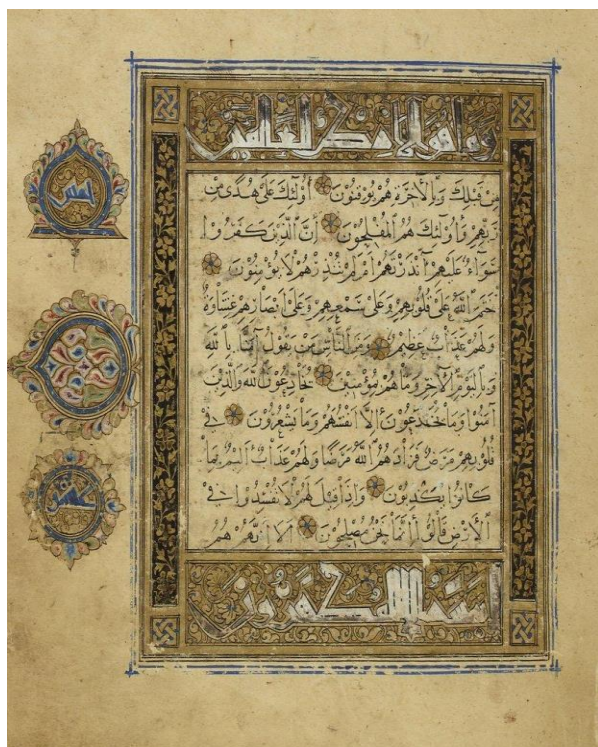 مِن قَبْلِكَ وَبِالْآخِرَةِ هُمْ يُوقِنُونَ أُولَئِكَ عَلَى هُدًى مِن
رَبِّهِمْ وَأُولَئِكَ هُمُ الْمُفْلِحُونَ إِنَّ الَّذِينَ كَفَرُوا
سَوَاءٌ عَلَيْهِمْ أَأَنذَرْتَهُمْ أَمْ لَمْ تُنذِرْهُمْ لَا يُؤْمِنُونَ
خَتَمَ اللَّهُ عَلَى قُلُوبِهِمْ وَعَلَى سَمْعِهِمْ وَعَلَى أَبْصَارِهِمْ غِشَاوَةٌ
وَلَهُمْ عَذَابٌ عَظِيمٌ وَمِنَ النَّاسِ مَن يَقُولُ آمَنَّا بِاللَّهِ
وَبِالْيَوْمِ الْآخِرِ وَمَا هُمْ بِمُؤْمِنِينَ يُخَادِعُونَ اللَّهَ وَالَّذِينَ
آمَنُوا وَمَا يَخْدَعُونَ إِلَّا أَنفُسَهُمْ وَمَا يَشْعُرُونَ فِي
قُلُوبِهِمْ مَرَضٌ فَزَادَهُمُ اللَّهُ مَرَضًا وَلَهُمْ عَذَابٌ أَلِيمٌ بِمَا
كَانُوا يَكْذِبُونَ وَإِذَا قِيلَ لَهُمْ لَا تُفْسِدُوا فِي
الْأَرْضِ قَالُوا إِنَّمَا نَحْنُ مُصْلِحُونَ أَلَا إِنَّهُمْ هُمُ